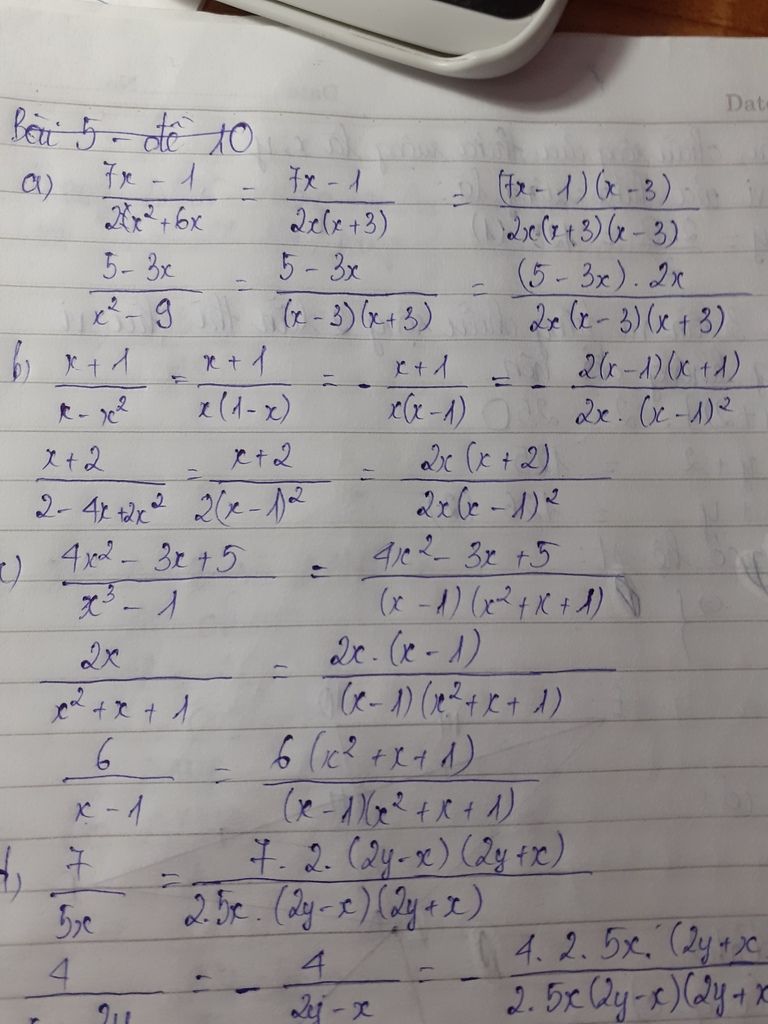 Date
Bài 5 - đề 10
a) (7x - 1)/(2x² + 6x) = (7x - 1)/(2x(x + 3)) = ((7x - 1)(x - 3))/(2x(x + 3)(x - 3))
(5 - 3x)/(x² - 9) = (5 - 3x)/((x - 3)(x + 3)) = ((5 - 3x) . 2x)/(2x(x - 3)(x + 3))
b) (x + 1)/(x - x²) = (x + 1)/(x(1 - x)) = - (x + 1)/(x(x - 1)) = - (2(x - 1)(x + 1))/(2x . (x - 1)²)
(x + 2)/(2 - 4x + 2x²) = (x + 2)/(2(x - 1)²) = (2x(x + 2))/(2x(x - 1)²)
c) (4x² - 3x + 5)/(x³ - 1) = (4x² - 3x + 5)/((x - 1)(x² + x + 1))
(2x)/(x² + x + 1) = (2x . (x - 1))/((x - 1)(x² + x + 1))
6/(x - 1) = (6(x² + x + 1))/((x - 1)(x² + x + 1))
d) 7/(5x) = (7 . 2 . (2y - x)(2y + x))/(2.5x . (2y - x)(2y + x))
4/(2y) = - 4/(2y - x) = - (4 . 2 . 5x . (2y + x)/(2.5x(2y - x)(2y + x)